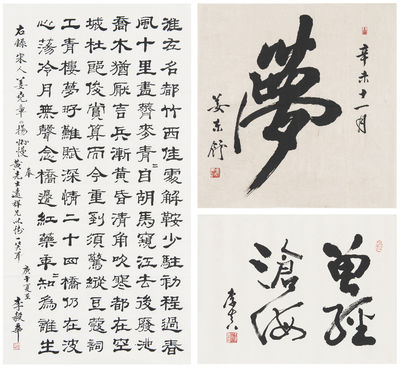 淮左名都竹西佳處解鞍少駐初程過春
風十里盡薺麥青〻自胡馬窺江去後廢池
喬木猶厭言兵漸黃昏清角吹寒都在空
城杜郎俊賞算而今重到須驚縱豆蔻詞
工青樓夢好難賦深情二十四橋仍在波
心蕩冷月無聲念橋邊紅藥年〻知為誰生
右錄宋人姜堯章揚州慢奉
黃先生遠祥兄以
庚午夏至李毅華
辛未十一月
夢
姜東舒
曾經
滄海